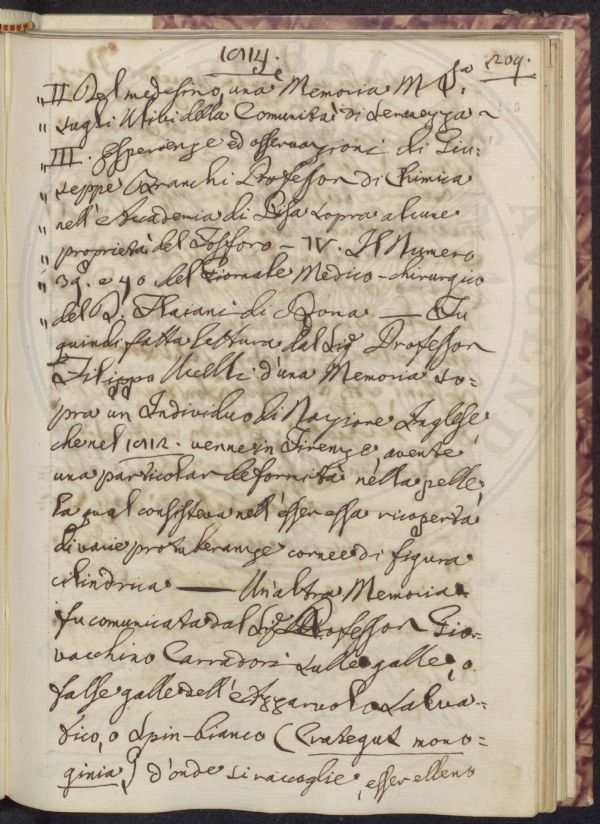 1814. 209.
„ II Del medesimo, una Memoria MSsa.
„ sugli Ulivi della Comunità di Seravezza ~
„ III. Esperienze ed osservazioni di Giu:
„ seppe Branchi Professor di Chimica
„ nell'Accademia di Pisa sopra alcune
„ proprietà del Fosforo – IV. Il Numero
„ 39. e 40 del Giornale Medico-chirurgico
„ del D. Flaiani di Roma — Fu
quindi fatta lettura dal Sig Professor
Filippo Uccelli d'una Memoria so:
pra un Individuo di Nazione Inglese
che nel 1812. venne in Firenze, avente
una particolar deformità nella pelle,
la qual consisteva nell'esser essa ricoperta
di varie protuberanze cornee di figura
cilindrica — Un'altra Memoria
fu comunicata dal Sig Professor Gio:
vacchino Carradori sulle galle, o
false galle dell'Azzaruolo salva:
tico, o Spin-bianco (Crategus mono:
ginia) d'onde si raccoglie, esser elleno